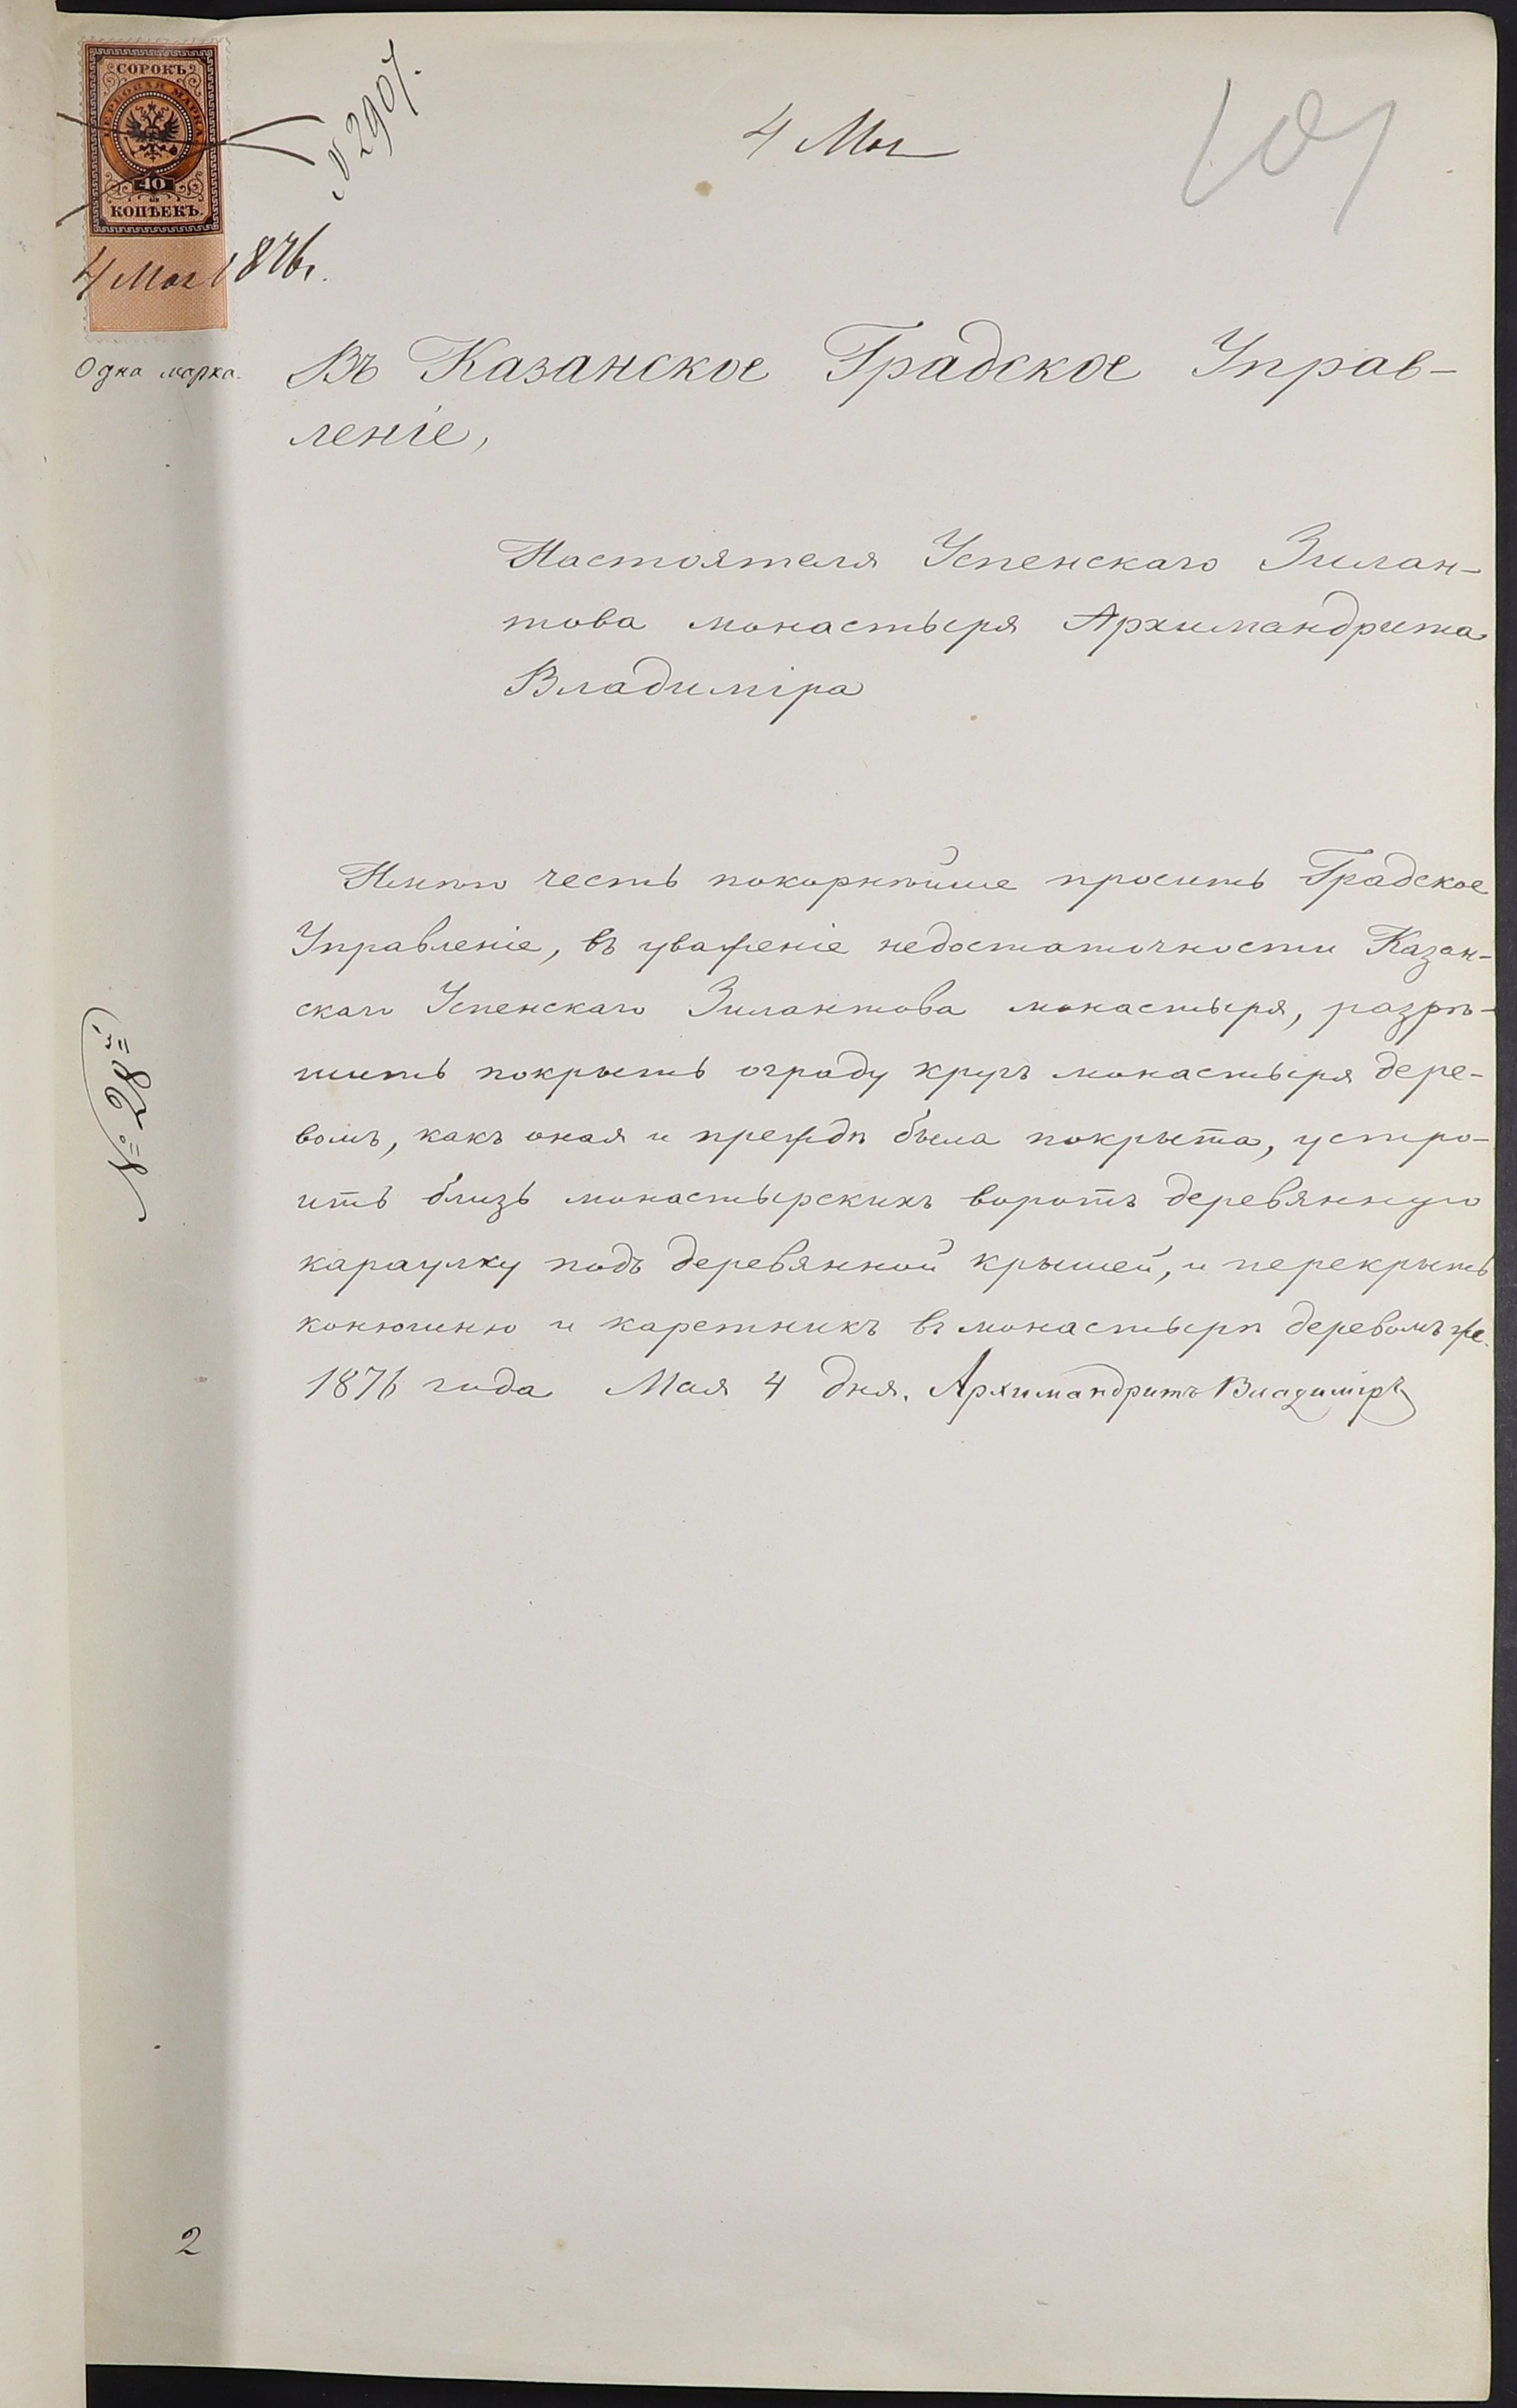 СОРОКЪ
ГЕРБОВАЯ МАРКА
40
КОПѢЕКЪ.
4 Мая 1876 г.
Одна марка.
№ 2907.
4 Мая
Въ Казанское Градское Управ-
леніе,
Настоятеля Успенскаго Зилан-
това монастыря Архимандрита
Владиміра
Имѣю честь покорнѣйше просить Градское
Управленіе, въ уваженіе недостаточности Казан-
скаго Успенскаго Зилантова монастыря, разрѣ-
шить покрыть ограду кругъ монастыря дере-
вомъ, какъ оная и преждѣ была покрыта, устро-
ить близъ монастырскихъ воротъ деревянную
караулку подъ деревянной крышей, и перекрыть
конюшню и каретникъ въ монастырѣ деревомъ же.
1876 года Мая 4 дня. Архимандритъ Владиміръ
№ 28й
2